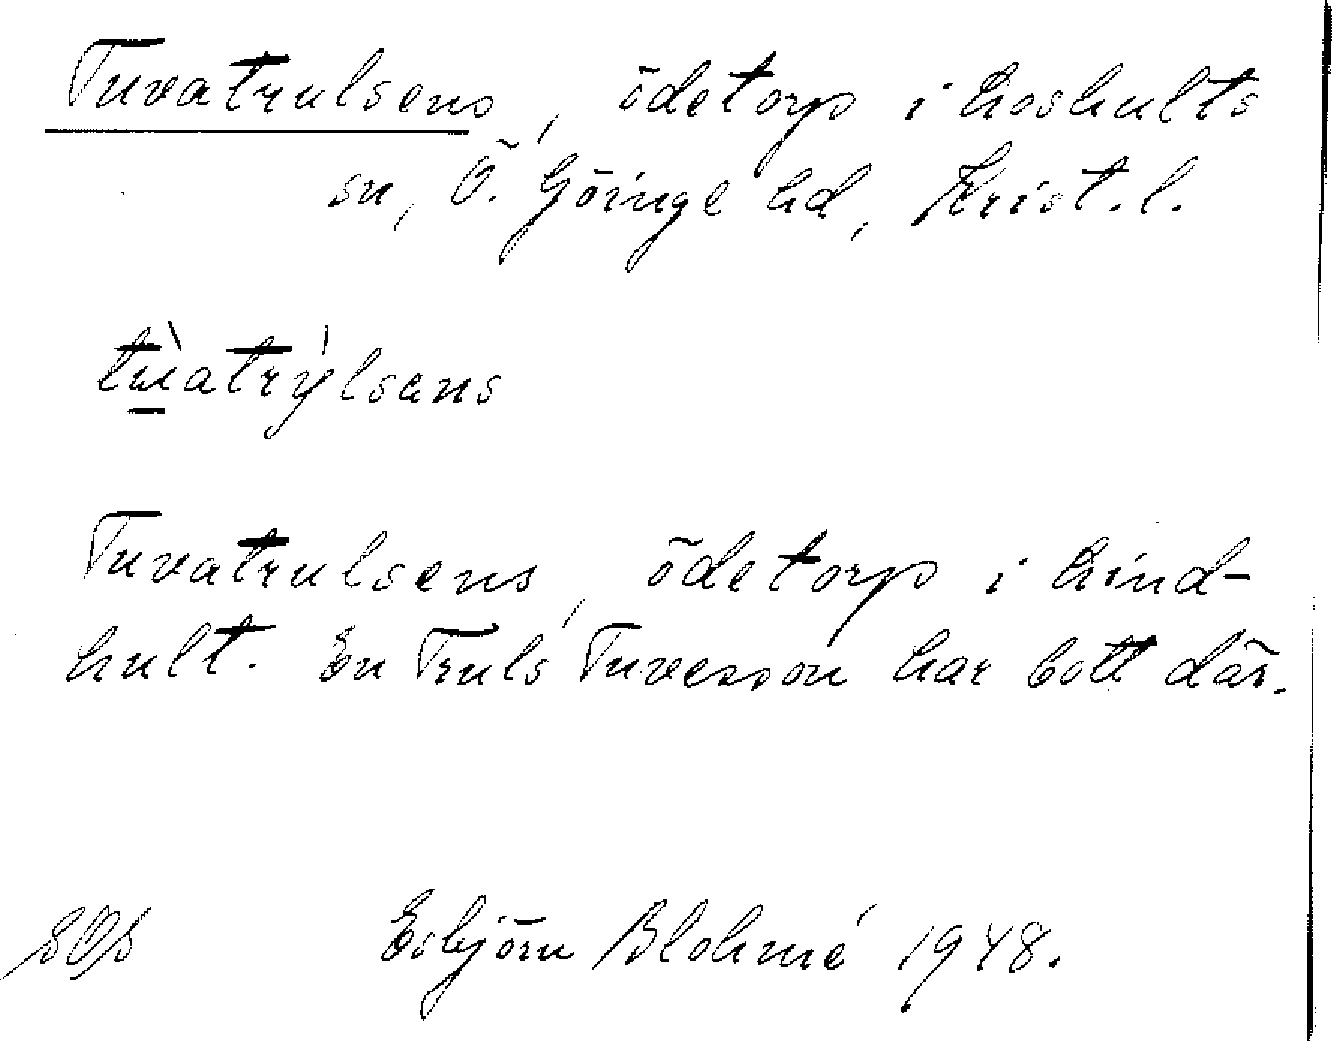 Tuvatrulsens, ödetorp i Loshults
sn, Ö. Göinge hd, Krist. l.
tùatrýlsans
Tuvatrulsens, ödetorp i Kind-
hult. En Truls Tuvesson har bott där.
Esbjörn Blohmé 1948.